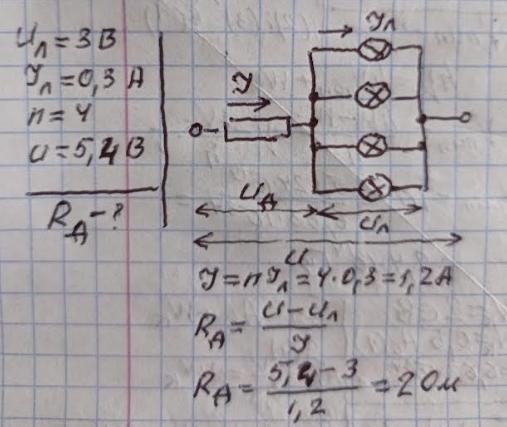 Uл = 3 В
Iл = 0,3 А
n = 4
U = 5,4 В
Rд - ?
I
Iл
Uд
Uл
U
I = nIл = 4·0,3 = 1,2 А
Rд = (U - Uл) / I
Rд = (5,4 - 3) / 1,2 = 2 Ом